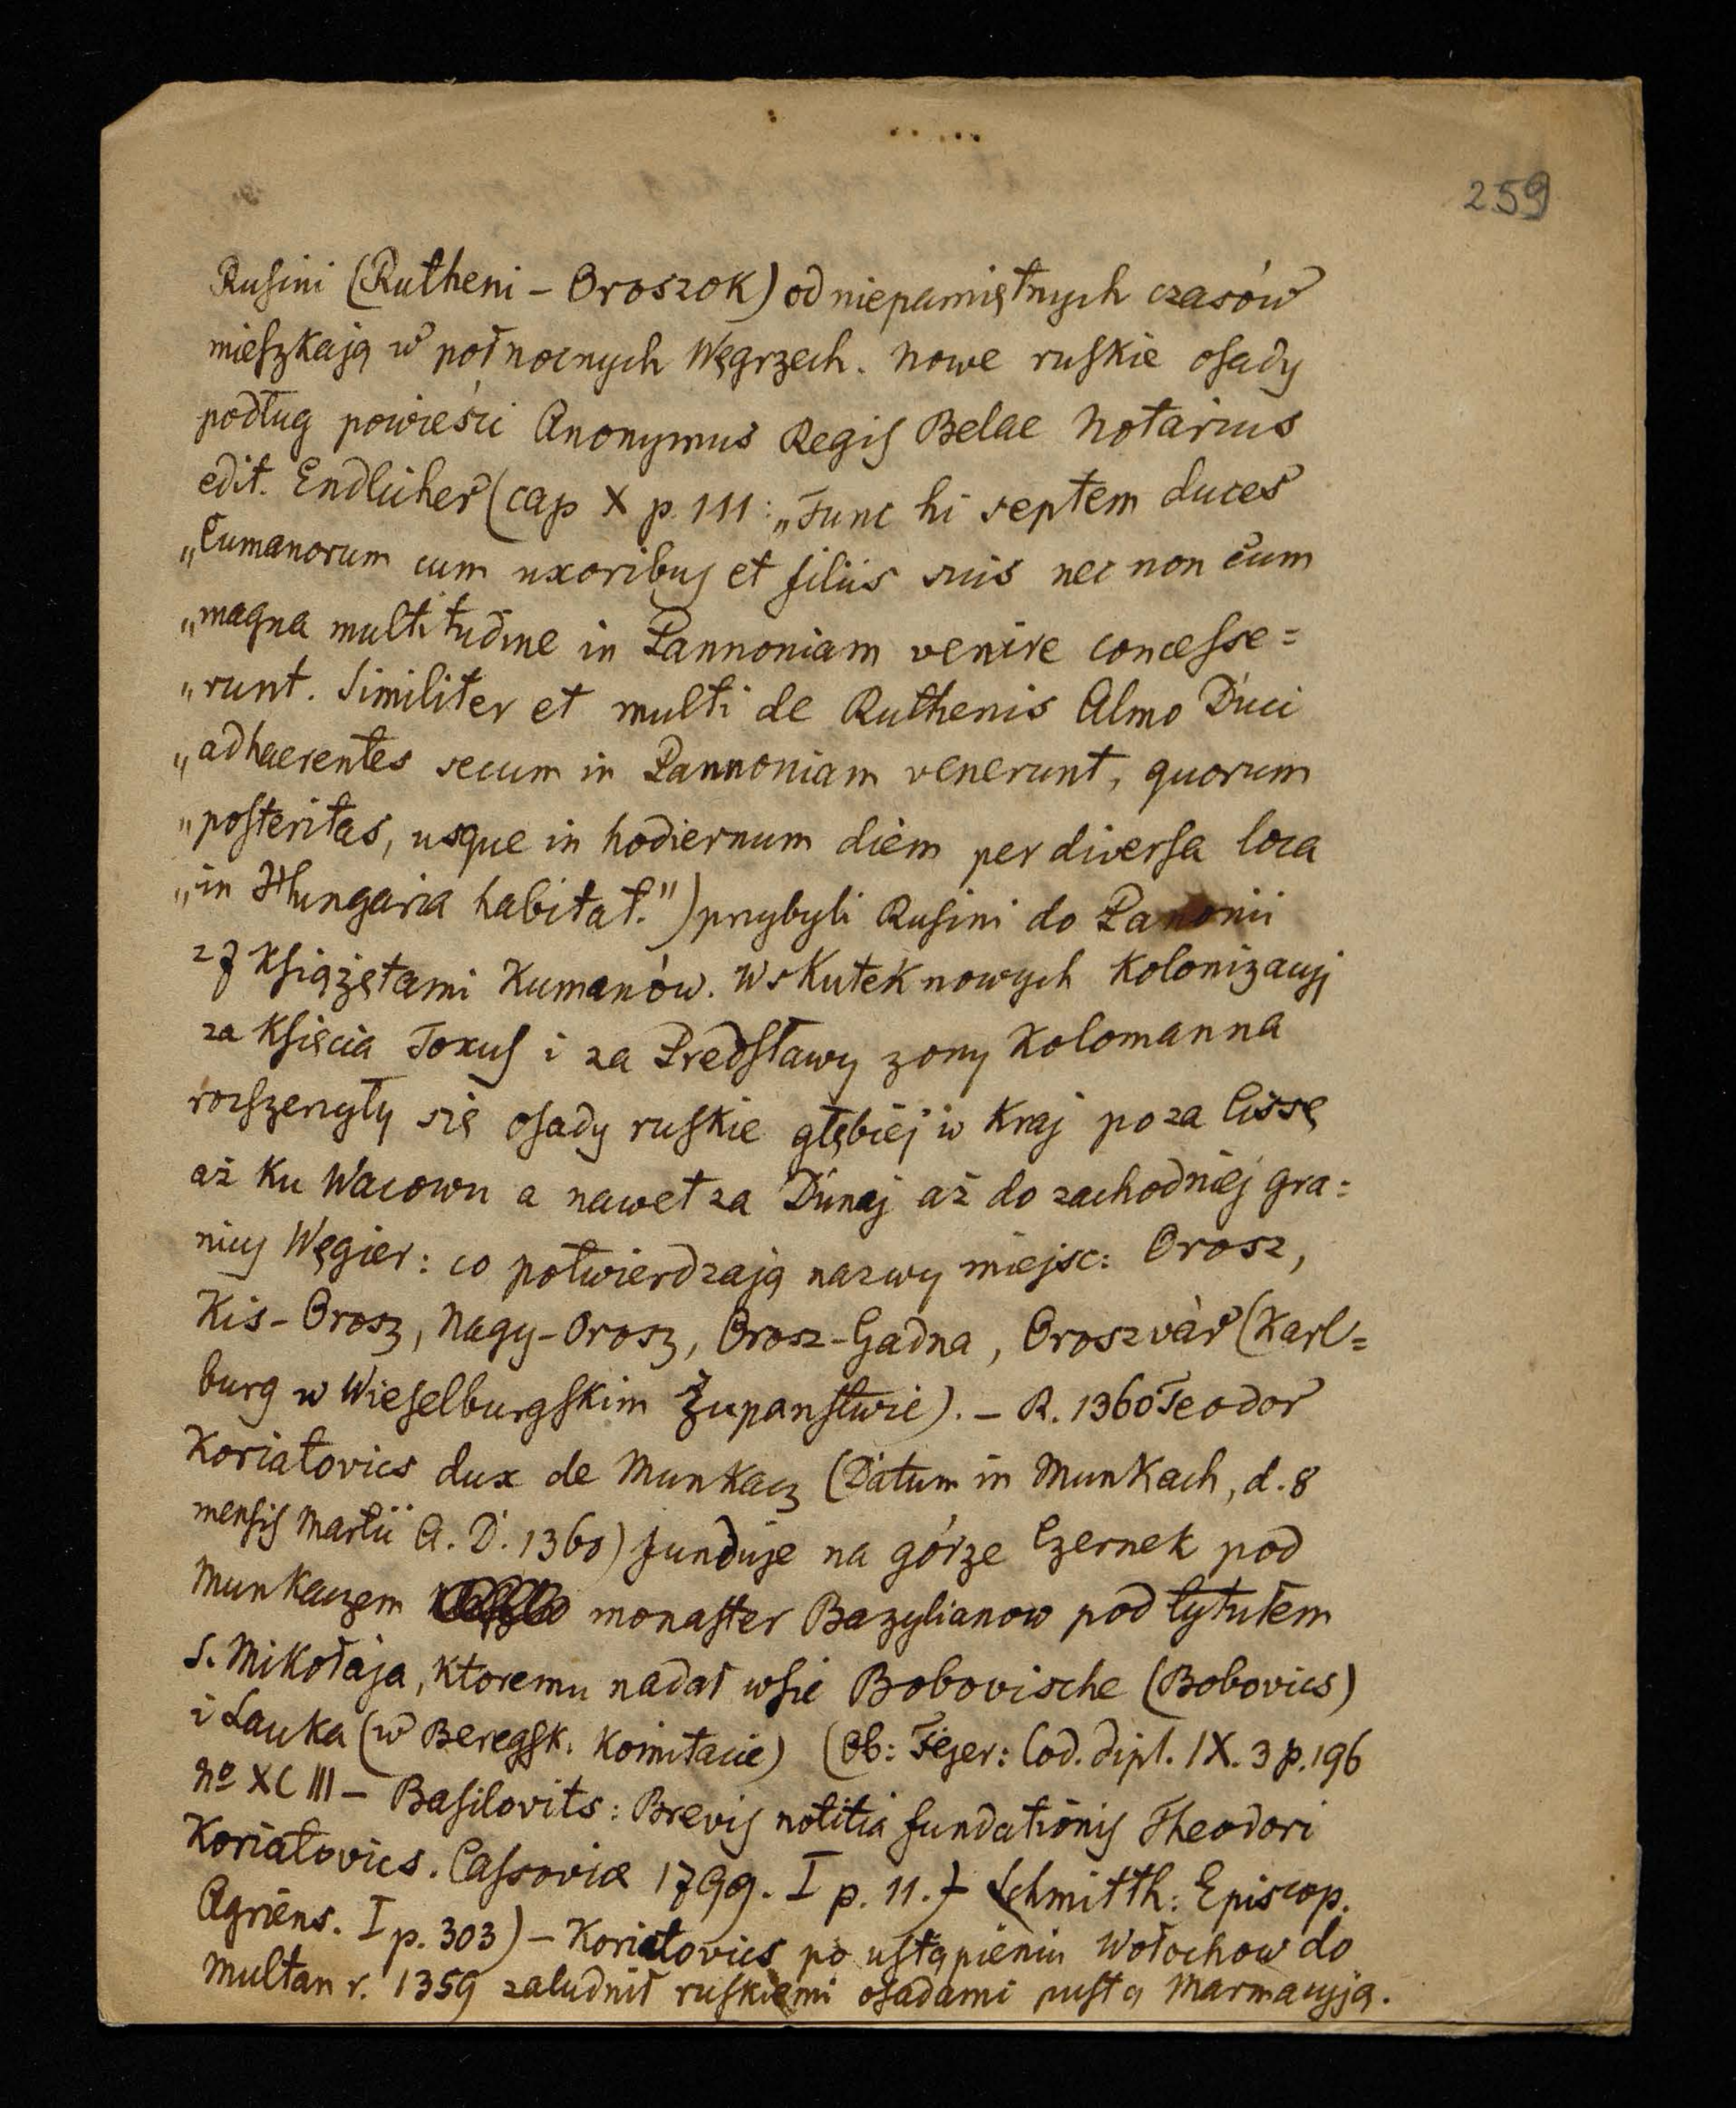 259
Rusini (Rutheni – Oroszok) od niepamiętnych czasów
mieszkają w połnocnych Węgrzech. Nowe ruskie osady
podług powieści Anonymus Regis Belae Notarius
edit. Endlicher (cap X p. 111: „Tunc hi septem duces
„Cumanorum cum uxoribus et filiis suis nec non cum
„magna multitudine in Pannoniam venire concesse=
„runt. Similiter et multi de Ruthenis Almo Duci
„adhaerentes secum in Pannoniam venerunt, quorum
„posteritas, usque in hodiernum diem per diversa loca
„in Hungaria habitat.") przybyli Rusini do Panonii
z 7 Książętami Kumanów. Wskutek nowych kolonizacyj
za Księcia Toxus i za Predsławy zony Kolomanna
rozszerzyły się osady ruskie głębiej w kraj poza Cissę
aż ku Wacowu a nawet za Dunaj aż do zachodniej gra=
nicy Węgier: co potwierdzają nazwy miejsc: Orosz,
Kis-Orosz, Nagy-Orosz, Orosz-Gadna, Oroszvàr (Karl=
burg w Wieselburgskim Županstwie). – R. 1360 Teodor
Koriatovics dux de Munkacz (Datum in Munkach, d. 8
mensis Martii A. D. 1360) funduje na górze Czernek pod
Munkaczem monaster Bazylianow pod tytułem
S. Mikołaja, ktoremu nadał wsie Bobovische (Bobovics)
i Lauka (w Beregsk. Komitacie) (Ob: Fejer: Cod. dipl. IX. 3 p. 196
No XCIII – Basilovits: Brevis notitia fundationis Theodori
Koriatovics. Cassoviæ 1799. I p. 11. Schmitth: Episcop.
Agriens. I p. 303) – Koriatovics po ustąpieniu Wołochow do
Multan r. 1359 zaludnił ruskiemi osadami pustą Marmacyją.